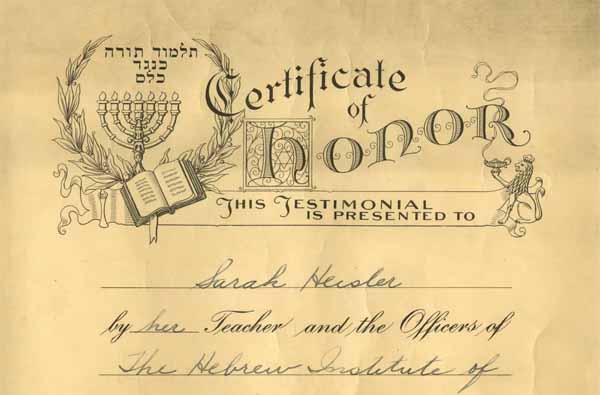 תלמוד תורה
כנגד
כלם
Certificate
of
Honor
This Testimonial
is presented to
Sarah Heisler
by her Teacher and the Officers of
The Hebrew Institute of